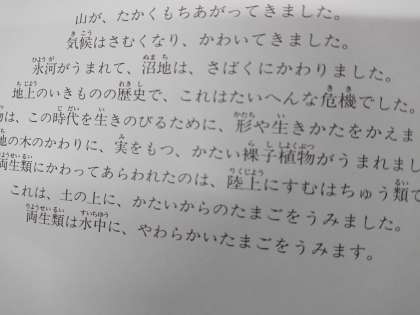 山が、たかくもちあがってきました。
気候はさむくなり、かわいてきました。
氷河がうまれて、沼地は、さばくにかわりました。
地上のいきものの歴史で、これはたいへんな危機でした。
は、この時代を生きのびるために、形や生きかたをかえま
地の木のかわりに、実をもつ、かたい裸子植物がうまれまし
両生類にかわってあらわれたのは、陸上にすむはちゅう類で
これは、土の上に、かたいからのたまごをうみました。
両生類は水中に、やわらかいたまごをうみます。